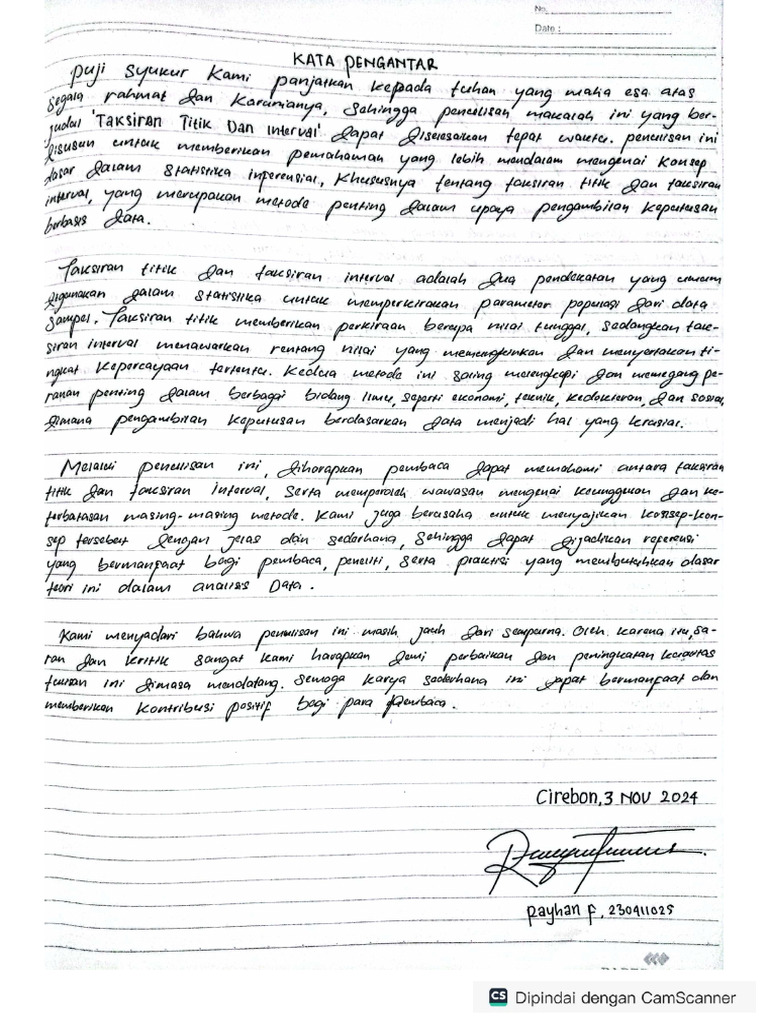 No.
Date :
KATA PENGANTAR
Puji syukur kami panjatkan kepada tuhan yang maha esa atas
segala rahmat dan karunianya, sehingga penulisan makalah ini yang ber-
judul 'Taksiran Titik Dan Interval' dapat diselesaikan tepat waktu. penulisan ini
disusun untuk memberikan pemahaman yang lebih mendalam mengenai konsep
dasar dalam statistika inferensial, khususnya tentang taksiran titik dan taksiran
interval, yang merupakan metode penting dalam upaya pengambilan keputusan
berbasis data.
Taksiran titik dan taksiran interval adalah dua pendekatan yang umum
digunakan dalam statistika untuk memperkirakan parameter populasi dari data
sampel. Taksiran titik memberikan perkiraan berupa nilai tunggal, sedangkan tak-
siran interval menawarkan rentang nilai yang memungkinkan dan menyertakan ti-
ngkat kepercayaan tertentu. Kedua metode ini saling melengkapi dan memegang pe-
ranan penting dalam berbagai bidang ilmu, seperti ekonomi, teknik, kedokteran, dan sosial,
dimana pengambilan keputusan berdasarkan data menjadi hal yang krusial.
Melalui penulisan ini, diharapkan pembaca dapat memahami antara taksiran
titik dan taksiran interval, serta memperoleh wawasan mengenai keunggulan dan ke-
terbatasan masing-masing metode. Kami juga berusaha untuk menyajikan konsep-kon-
sep tersebut dengan jelas dan sederhana, sehingga dapat dijadikan referensi
yang bermanfaat bagi pembaca, peneliti, serta praktisi yang membutuhkan dasar
teori ini dalam analisis Data.
Kami menyadari bahwa penulisan ini masih jauh dari sempurna. Oleh karena itu, sa-
ran dan kritik sangat kami harapkan demi perbaikan dan peningkatan kualitas
tulisan ini dimasa mendatang. Semoga karya sederhana ini dapat bermanfaat dan
memberikan kontribusi positif bagi para Pembaca.
Cirebon, 3 NOV 2024
Rayhan F, 230411025
CS Dipindai dengan CamScanner